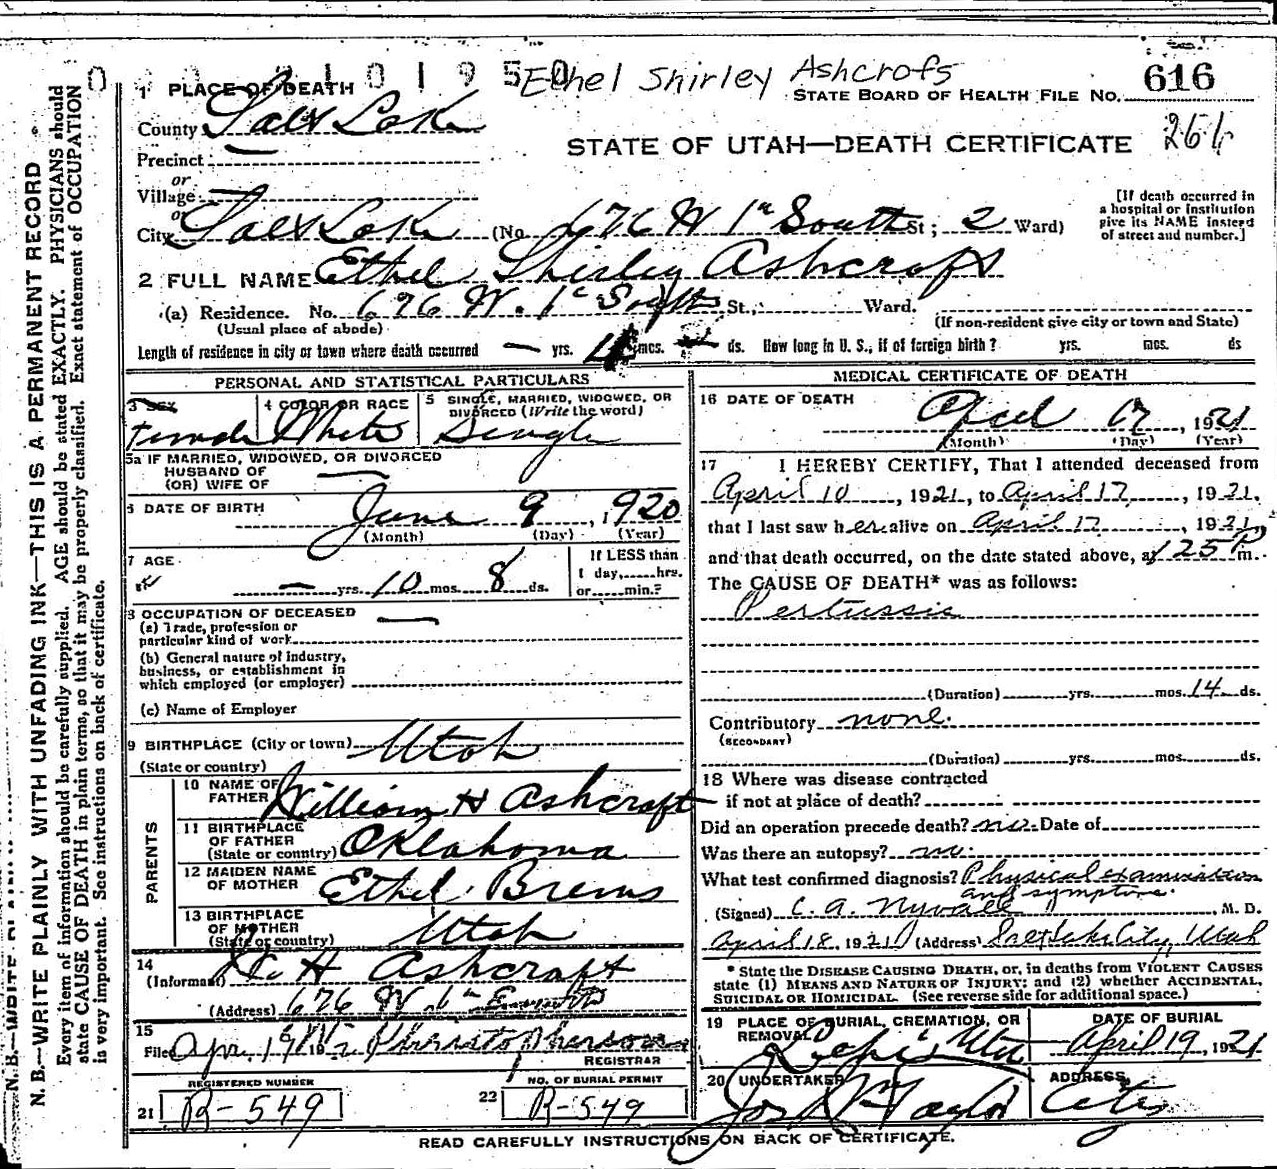 0 0 0 2 1 0 1 9 5 0
Ethel Shirley Ashcroft
1 PLACE OF DEATH
STATE BOARD OF HEALTH FILE NO. 616
County Salt Lake
STATE OF UTAH—DEATH CERTIFICATE 264
Precinct
or
Village
or
City Salt Lake (No. 676 W 1st South St; 2 Ward)
[If death occurred in
a hospital or institution
give its NAME instead
of street and number.]
2 FULL NAME Ethel Shirley Ashcroft
(a) Residence. No. 676 W. 1st South St., Ward.
(Usual place of abode)
(If non-resident give city or town and State)
Length of residence in city or town where death occurred — yrs. 4 mos. ds. How long in U. S., if of foreign birth? yrs. mos. ds
PERSONAL AND STATISTICAL PARTICULARS
3 SEX
Female
4 COLOR OR RACE
White
5 SINGLE, MARRIED, WIDOWED, OR
DIVORCED (Write the word)
Single
5a IF MARRIED, WIDOWED, OR DIVORCED
HUSBAND OF
(OR) WIFE OF —
6 DATE OF BIRTH June 9, 1920
(Month) (Day) (Year)
7 AGE
— yrs. 10 mos. 8 ds.
If LESS than
1 day, hrs.
or min.?
8 OCCUPATION OF DECEASED —
(a) Trade, profession or
particular kind of work
(b) General nature of industry,
business, or establishment in
which employed (or employer)
(c) Name of Employer
9 BIRTHPLACE (City or town) Utah
(State or country)
PARENTS
10 NAME OF
FATHER William H Ashcraft
11 BIRTHPLACE
OF FATHER
(State or country) Oklahoma
12 MAIDEN NAME
OF MOTHER Ethel Brems
13 BIRTHPLACE
OF MOTHER
(State or country) Utah
14
(Informant) W. H Ashcraft
(Address) 676 W. 1st
15
Filed Apr. 19 192
REGISTRAR
REGISTERED NUMBER
21 R-549
NO. OF BURIAL PERMIT
22 R-549
MEDICAL CERTIFICATE OF DEATH
16 DATE OF DEATH
April 17, 1921
(Month) (Day) (Year)
17 I HEREBY CERTIFY, That I attended deceased from
April 10, 1921, to April 17, 1921.
that I last saw her alive on April 17, 1921,
and that death occurred, on the date stated above, at 125 P m.
The CAUSE OF DEATH* was as follows:
Pertussis
(Duration) yrs. mos. 14 ds.
Contributory none.
(SECONDARY)
(Duration) yrs. mos. ds.
18 Where was disease contracted
if not at place of death?
Did an operation precede death? no. Date of
Was there an autopsy? no.
What test confirmed diagnosis? Physical examination
and symptoms.
(Signed) C. A. Nyvall, M. D.
April 18, 1921 (Address) Salt Lake City, Utah
* State the DISEASE CAUSING DEATH, or, in deaths from VIOLENT CAUSES
state (1) MEANS AND NATURE OF INJURY; and (2) whether ACCIDENTAL,
SUICIDAL OR HOMICIDAL. (See reverse side for additional space.)
19 PLACE OF BURIAL, CREMATION, OR
REMOVAL
Lehi Utah
DATE OF BURIAL
April 19, 1921
20 UNDERTAKER
Jos Wm Taylor
ADDRESS
City
READ CAREFULLY INSTRUCTIONS ON BACK OF CERTIFICATE.
N. B.—WRITE PLAINLY WITH UNFADING INK—THIS IS A PERMANENT RECORD
Every item of information should be carefully supplied. AGE should be stated EXACTLY. PHYSICIANS should
state CAUSE OF DEATH in plain terms, so that it may be properly classified. Exact statement of OCCUPATION
is very important. See instructions on back of certificate.